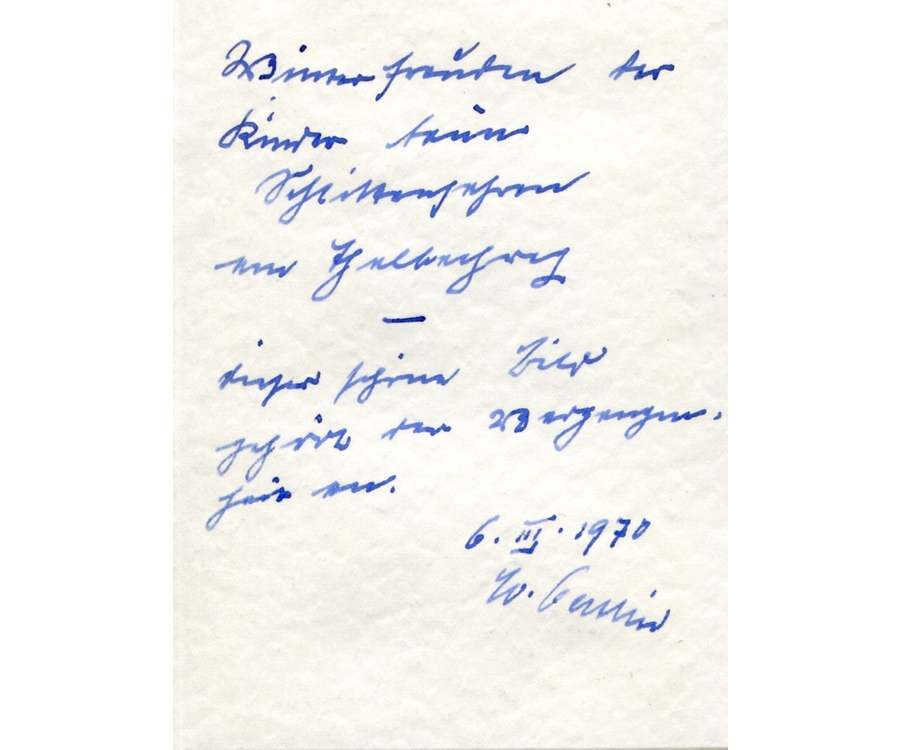 Winterfreuden der
Kinder beim
Schlittenfahren
am Thalbachweg
—
dieses schöne Bild
gehört der Vergangen-
heit an.
6. III. 1970
W.